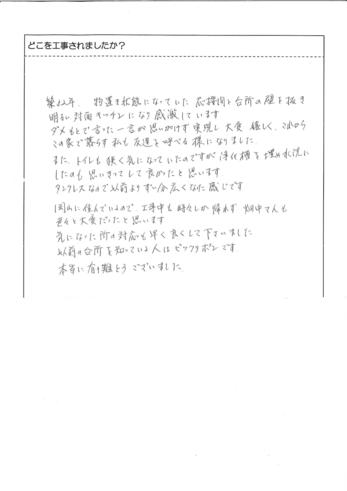 どこを工事されましたか？
築22年、物置き状態になっていた応接間と台所の壁を抜き
明るい対面キッチンになり感激しています
ダメもとで言った一言が思いがけず実現し大変嬉しく、これから
この家で暮らす私も友達を呼べる様になりました
また、トイレも狭く気になっていたのですが浄化槽を埋め水洗に
したのも思いきってして良かったと思います
タンクレスなので以前よりずい分広くなた感じです
岡山に住んでいるので、工事中も時々しか帰れず 畑中さんも
色々と大変だったと思います
気になった所の対応も早く良くして下さいました
以前の台所を知っている人はビックリポンです
本当に有り難とうございました